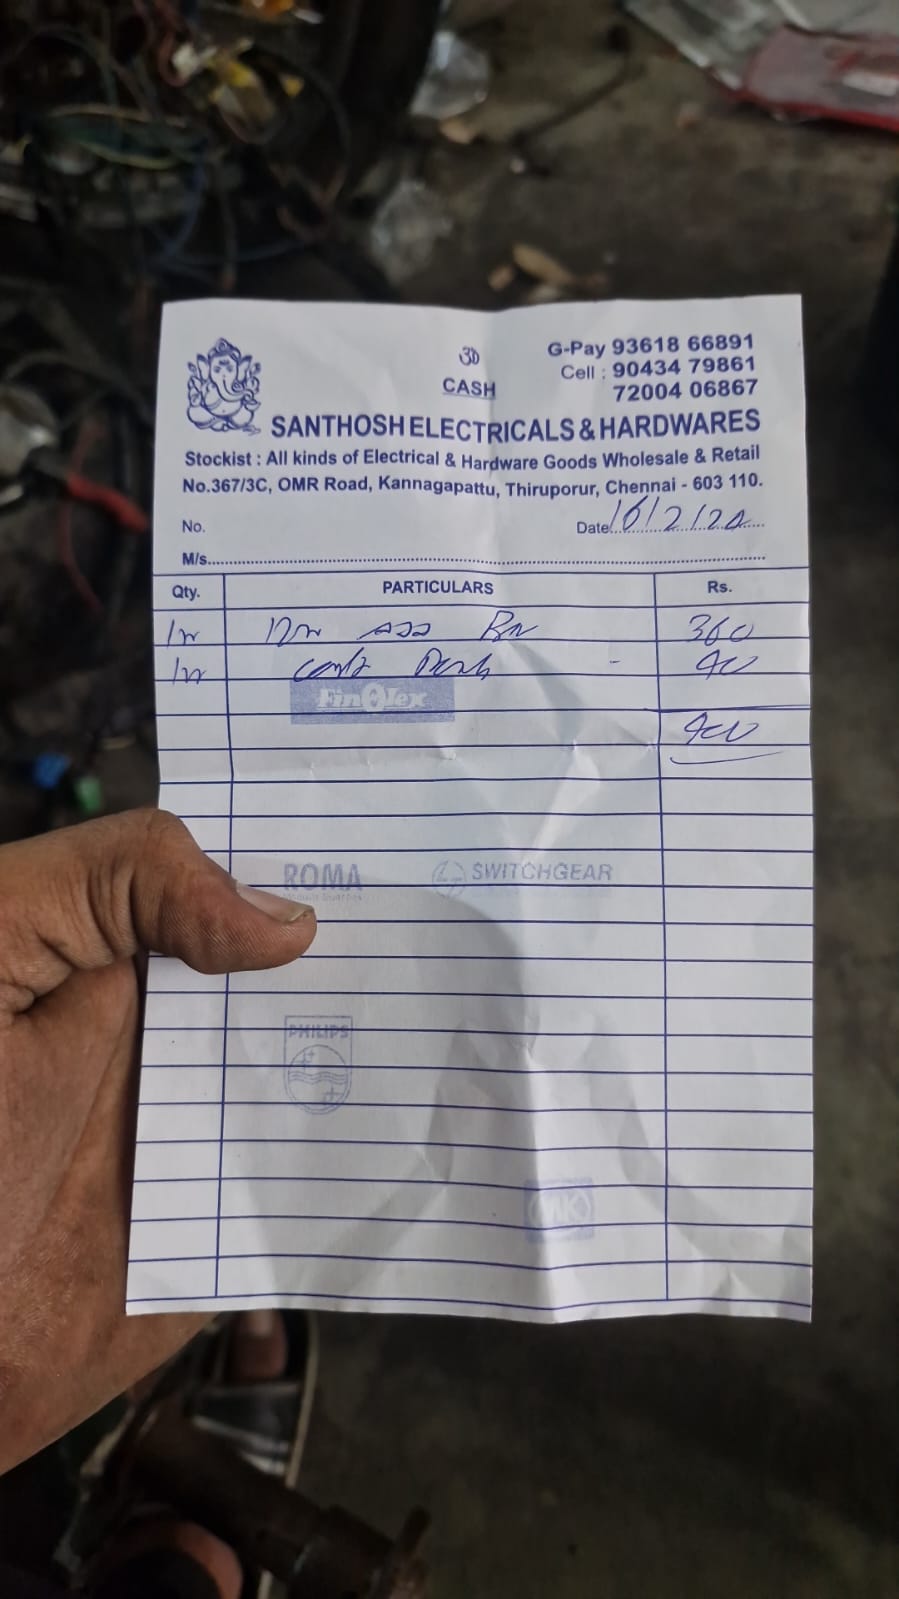 உ
CASH
G-Pay 93618 66891
Cell : 90434 79861
72004 06867
SANTHOSH ELECTRICALS & HARDWARES
Stockist : All kinds of Electrical & Hardware Goods Wholesale & Retail
No.367/3C, OMR Road, Kannagapattu, Thiruporur, Chennai - 603 110.
No.
Date
M/s.
Qty. PARTICULARS Rs.
360
40
Finolex
400
ROMA
SWITCHGEAR
PHILIPS
MK